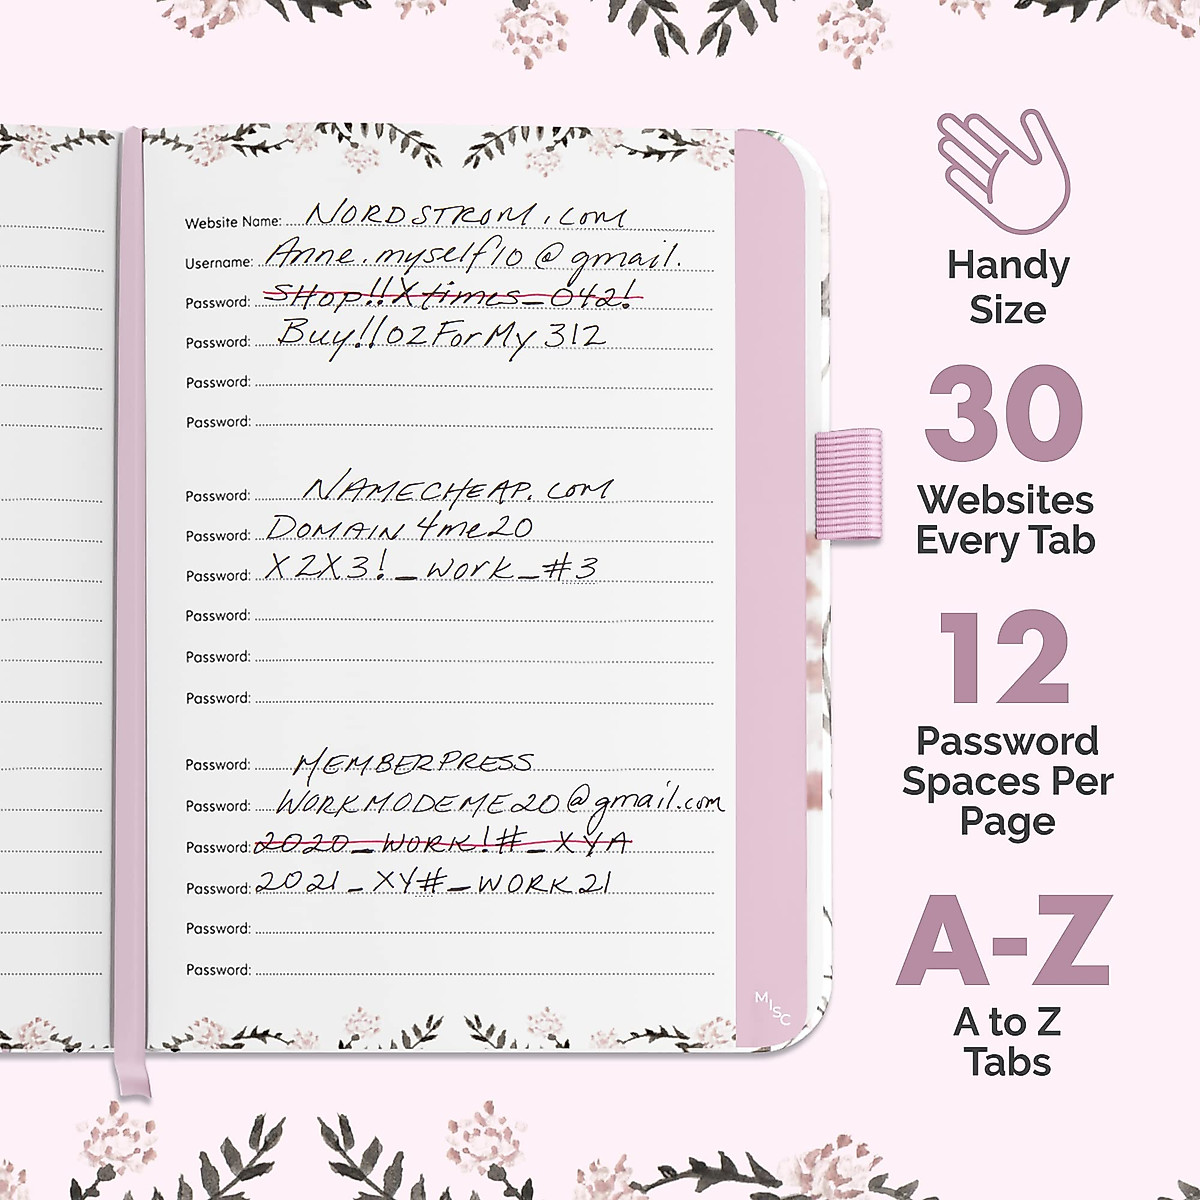 Website Name: NORDSTROM.com
Username: Anne.myself10@gmail.
Password: SHop!!Xtimes_042!
Password: Buy!!02ForMy312
Password:
Password:
Password: NAMECHEAP.COM
Password: DOMAIN4me20
Password: X2X3!_work_#3
Password:
Password:
Password:
Password: MEMBERPRESS
Password: WORKMODEME20@gmail.com
Password: 2020_WORK!#_XYA
Password: 2021_XY#_WORK21
Password:
Password:
MISC
Handy
Size
30
Websites
Every Tab
12
Password
Spaces Per
Page
A-Z
A to Z
Tabs